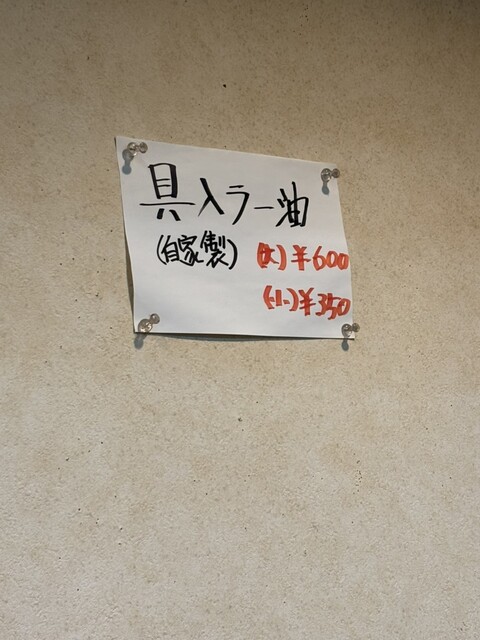 具入ラー油
(自家製) (大) ¥600
(小) ¥350